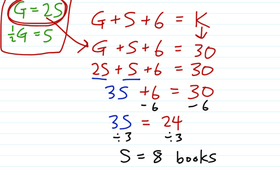 G = 2S
½G = S
G + S + 6 = K
G + S + 6 = 30
2S + S + 6 = 30
3S + 6 = 30
-6 -6
3S = 24
÷3 ÷3
S = 8 books